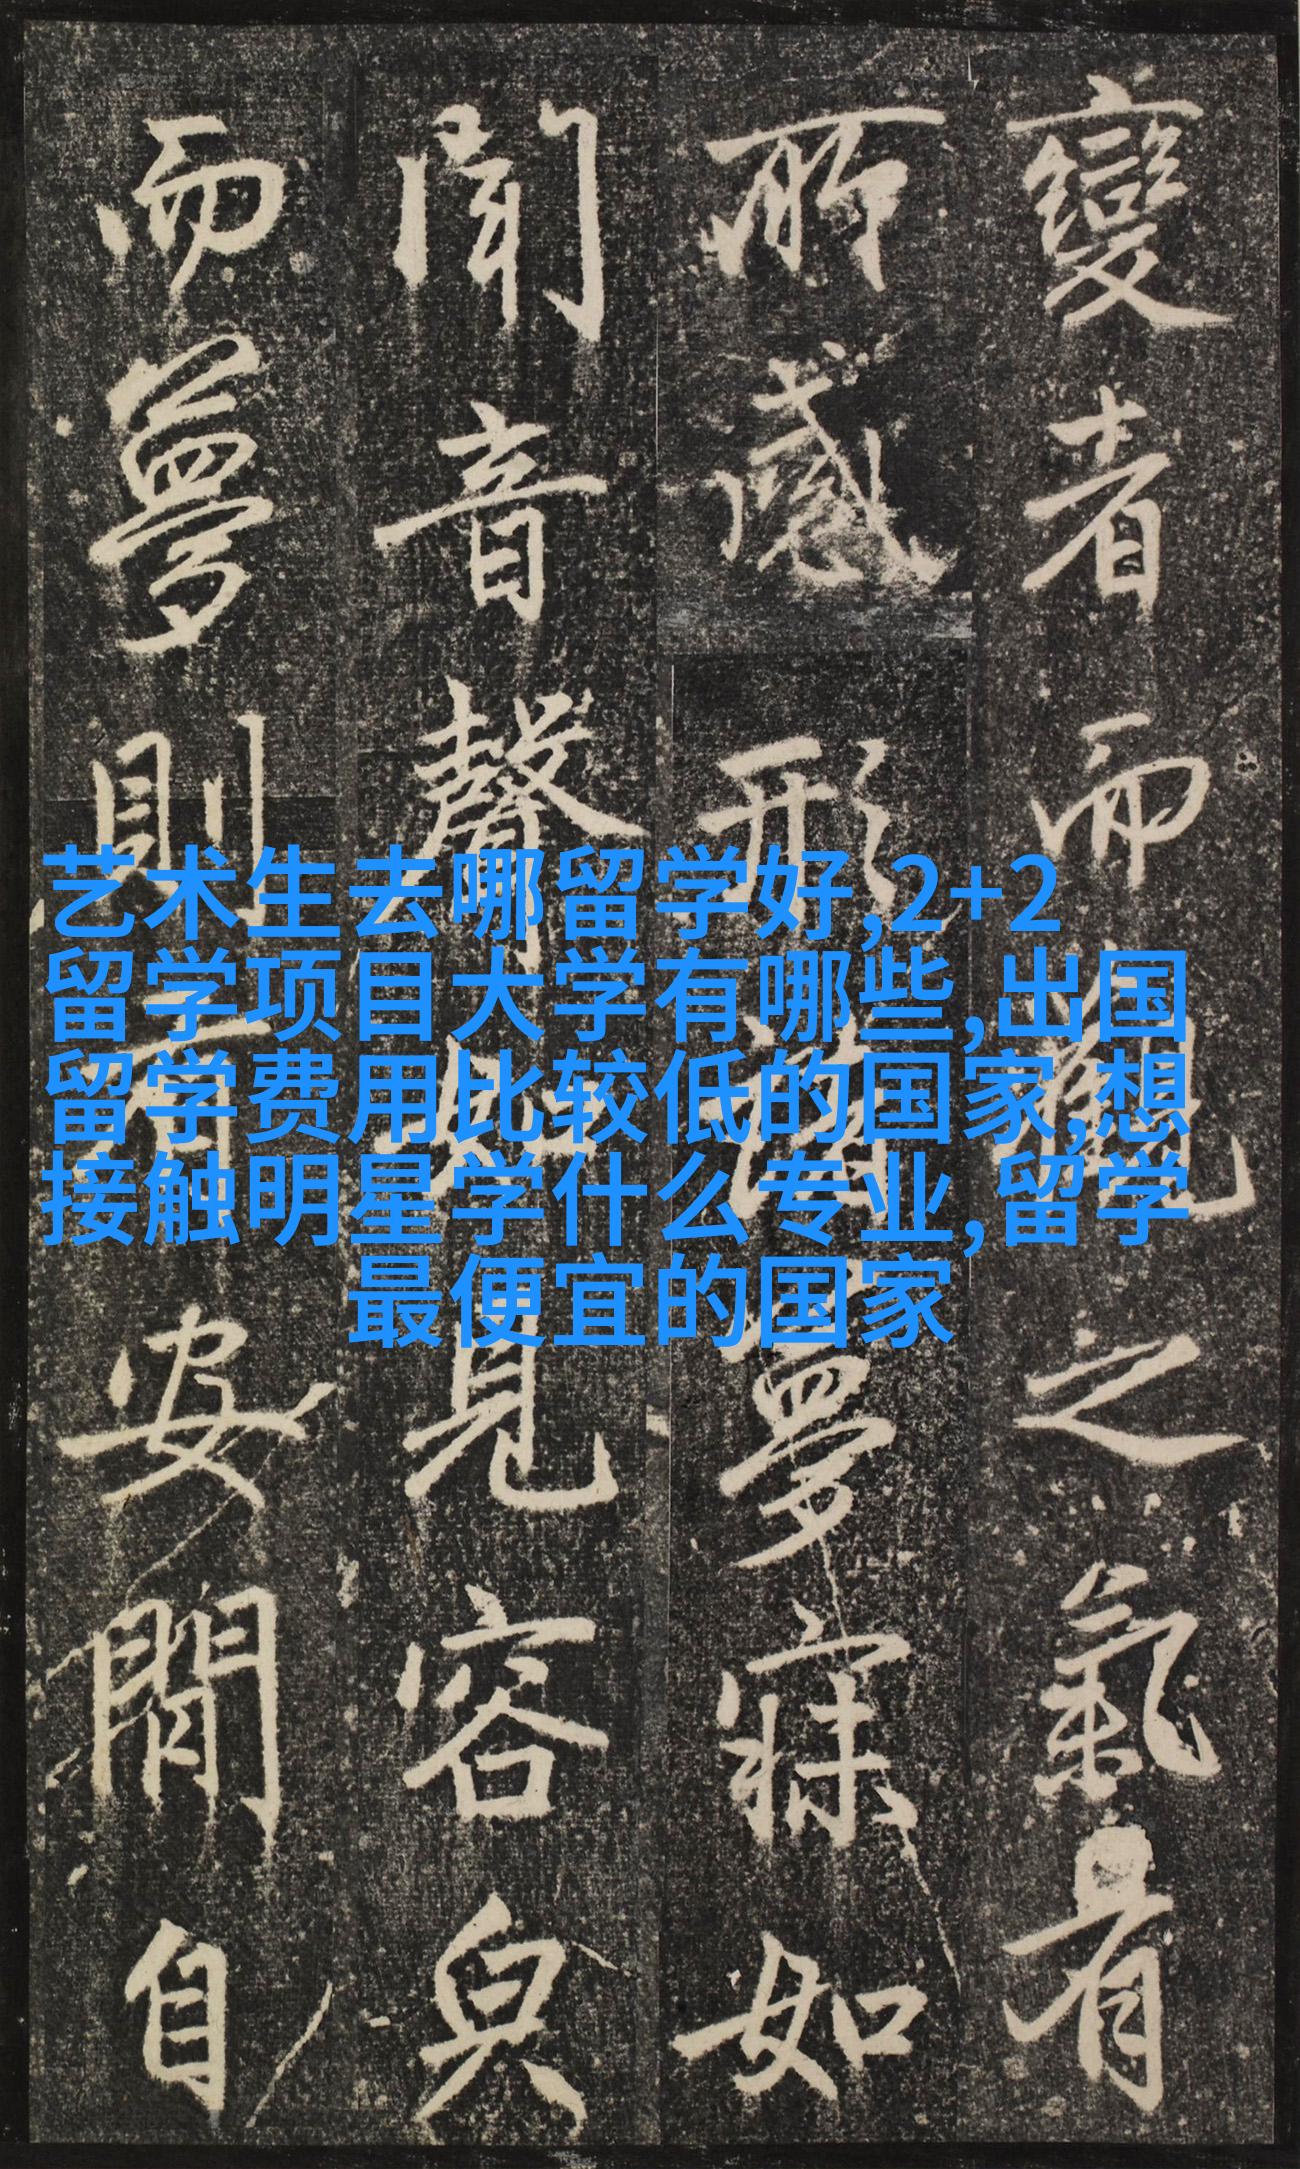 變者而觀之氣有
所感形諸夢寐如
聞音聲如見容皃
而夢則有安閒自
艺术生去哪留学好,2+2
留学项目大学有哪些,出国
留学费用比较低的国家,想
接触明星学什么专业,留学
最便宜的国家